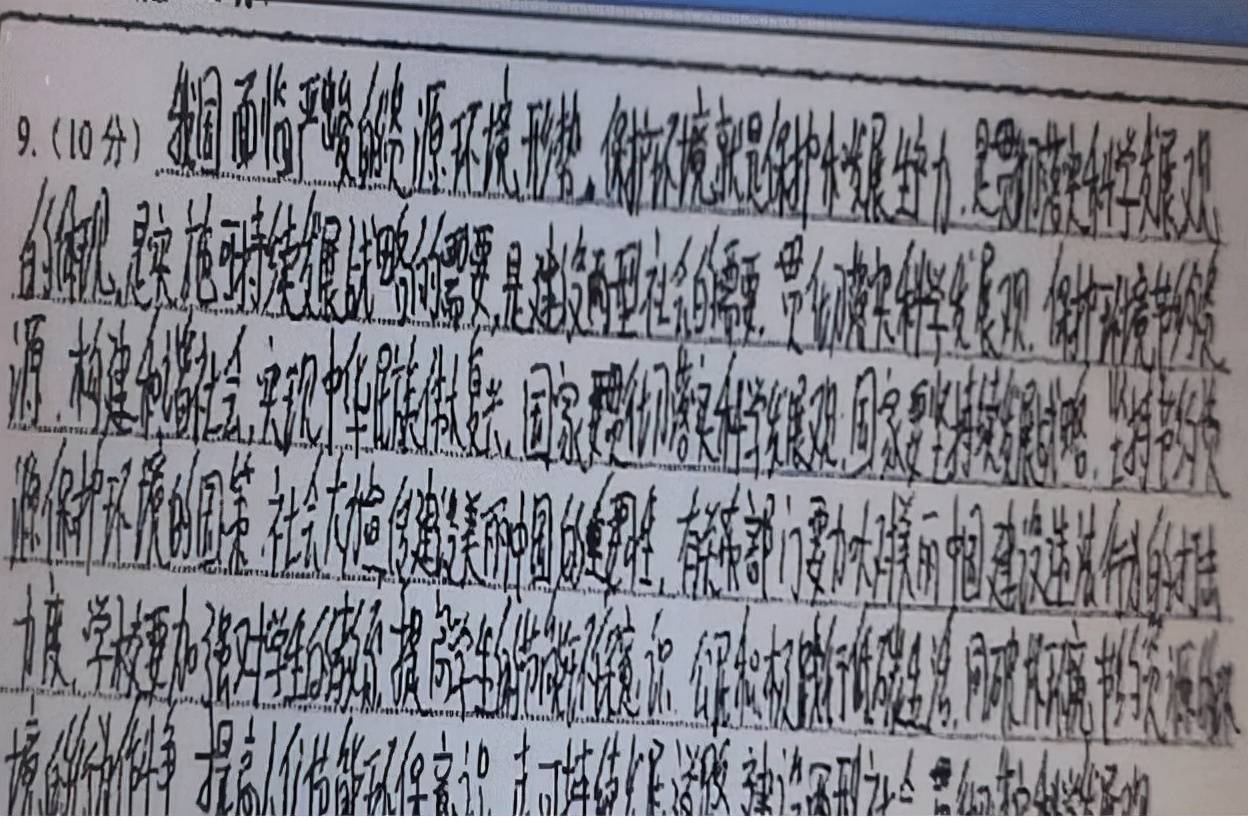 9.(10分) 我国面临严峻的资源环境形势,保护环境就是保护和发展生产力,是贯彻落实科学发展观
的体现,是实施可持续发展战略的需要,是建设两型社会的需要,贯彻落实科学发展观,保护环境节约资
源,构建和谐社会,实现中华民族伟大复兴,国家要贯彻落实科学发展观,国家要坚持可持续发展战略,坚持节约资
源保护环境的国策,社会大力宣传建设美丽中国的重要性,有关部门要加大对美丽中国建设违法行为的打击
力度,学校要加强对学生的教育,提高学生的节能环保意识,公民积极践行低碳生活,同破坏环境,资源
境的行为作斗争,提高人们节能环保意识,走可持续发展道路,建设两型社会,贯彻落实科学发展观